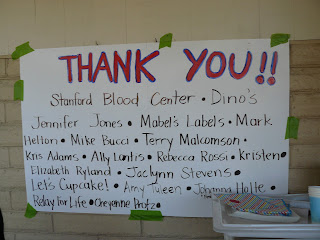 THANK YOU!!
Stanford Blood Center • Dino's
Jennifer Jones • Mabel's Labels • Mark
Helton • Mike Bucci • Terry Malcomson •
Kris Adams • Ally Lantis • Rebecca Rossi • Kristen •
Elizabeth Ryland • Jaclynn Stevens •
Let's Cupcake! • Amy Tuleen • Johanna Holle •
Relay For Life • Cheyenne Protz •